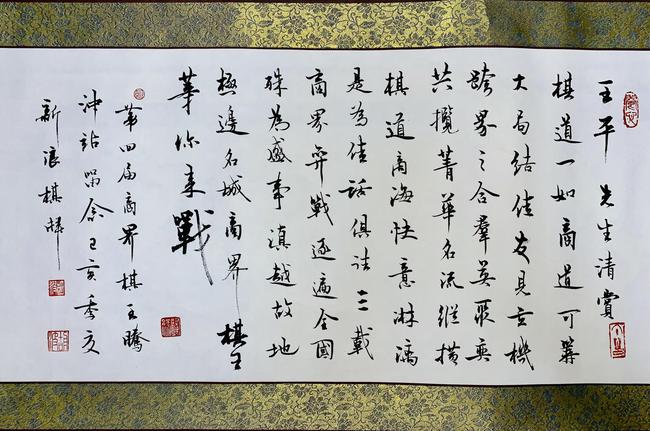 王平 先生清賞
棋道一如商道可籌
大局结佳友見玄機
跨界之合群英聚奕
共攬菁華名流縱横
棋道商海快意淋漓
是為佳話俱誌三載
商界弈戰逐遍全國
殊為盛事滇越故地
極邊名城商界棋王
等你来戰
第四届商界棋王騰
沖站留念己亥季夏
新浪棋牌